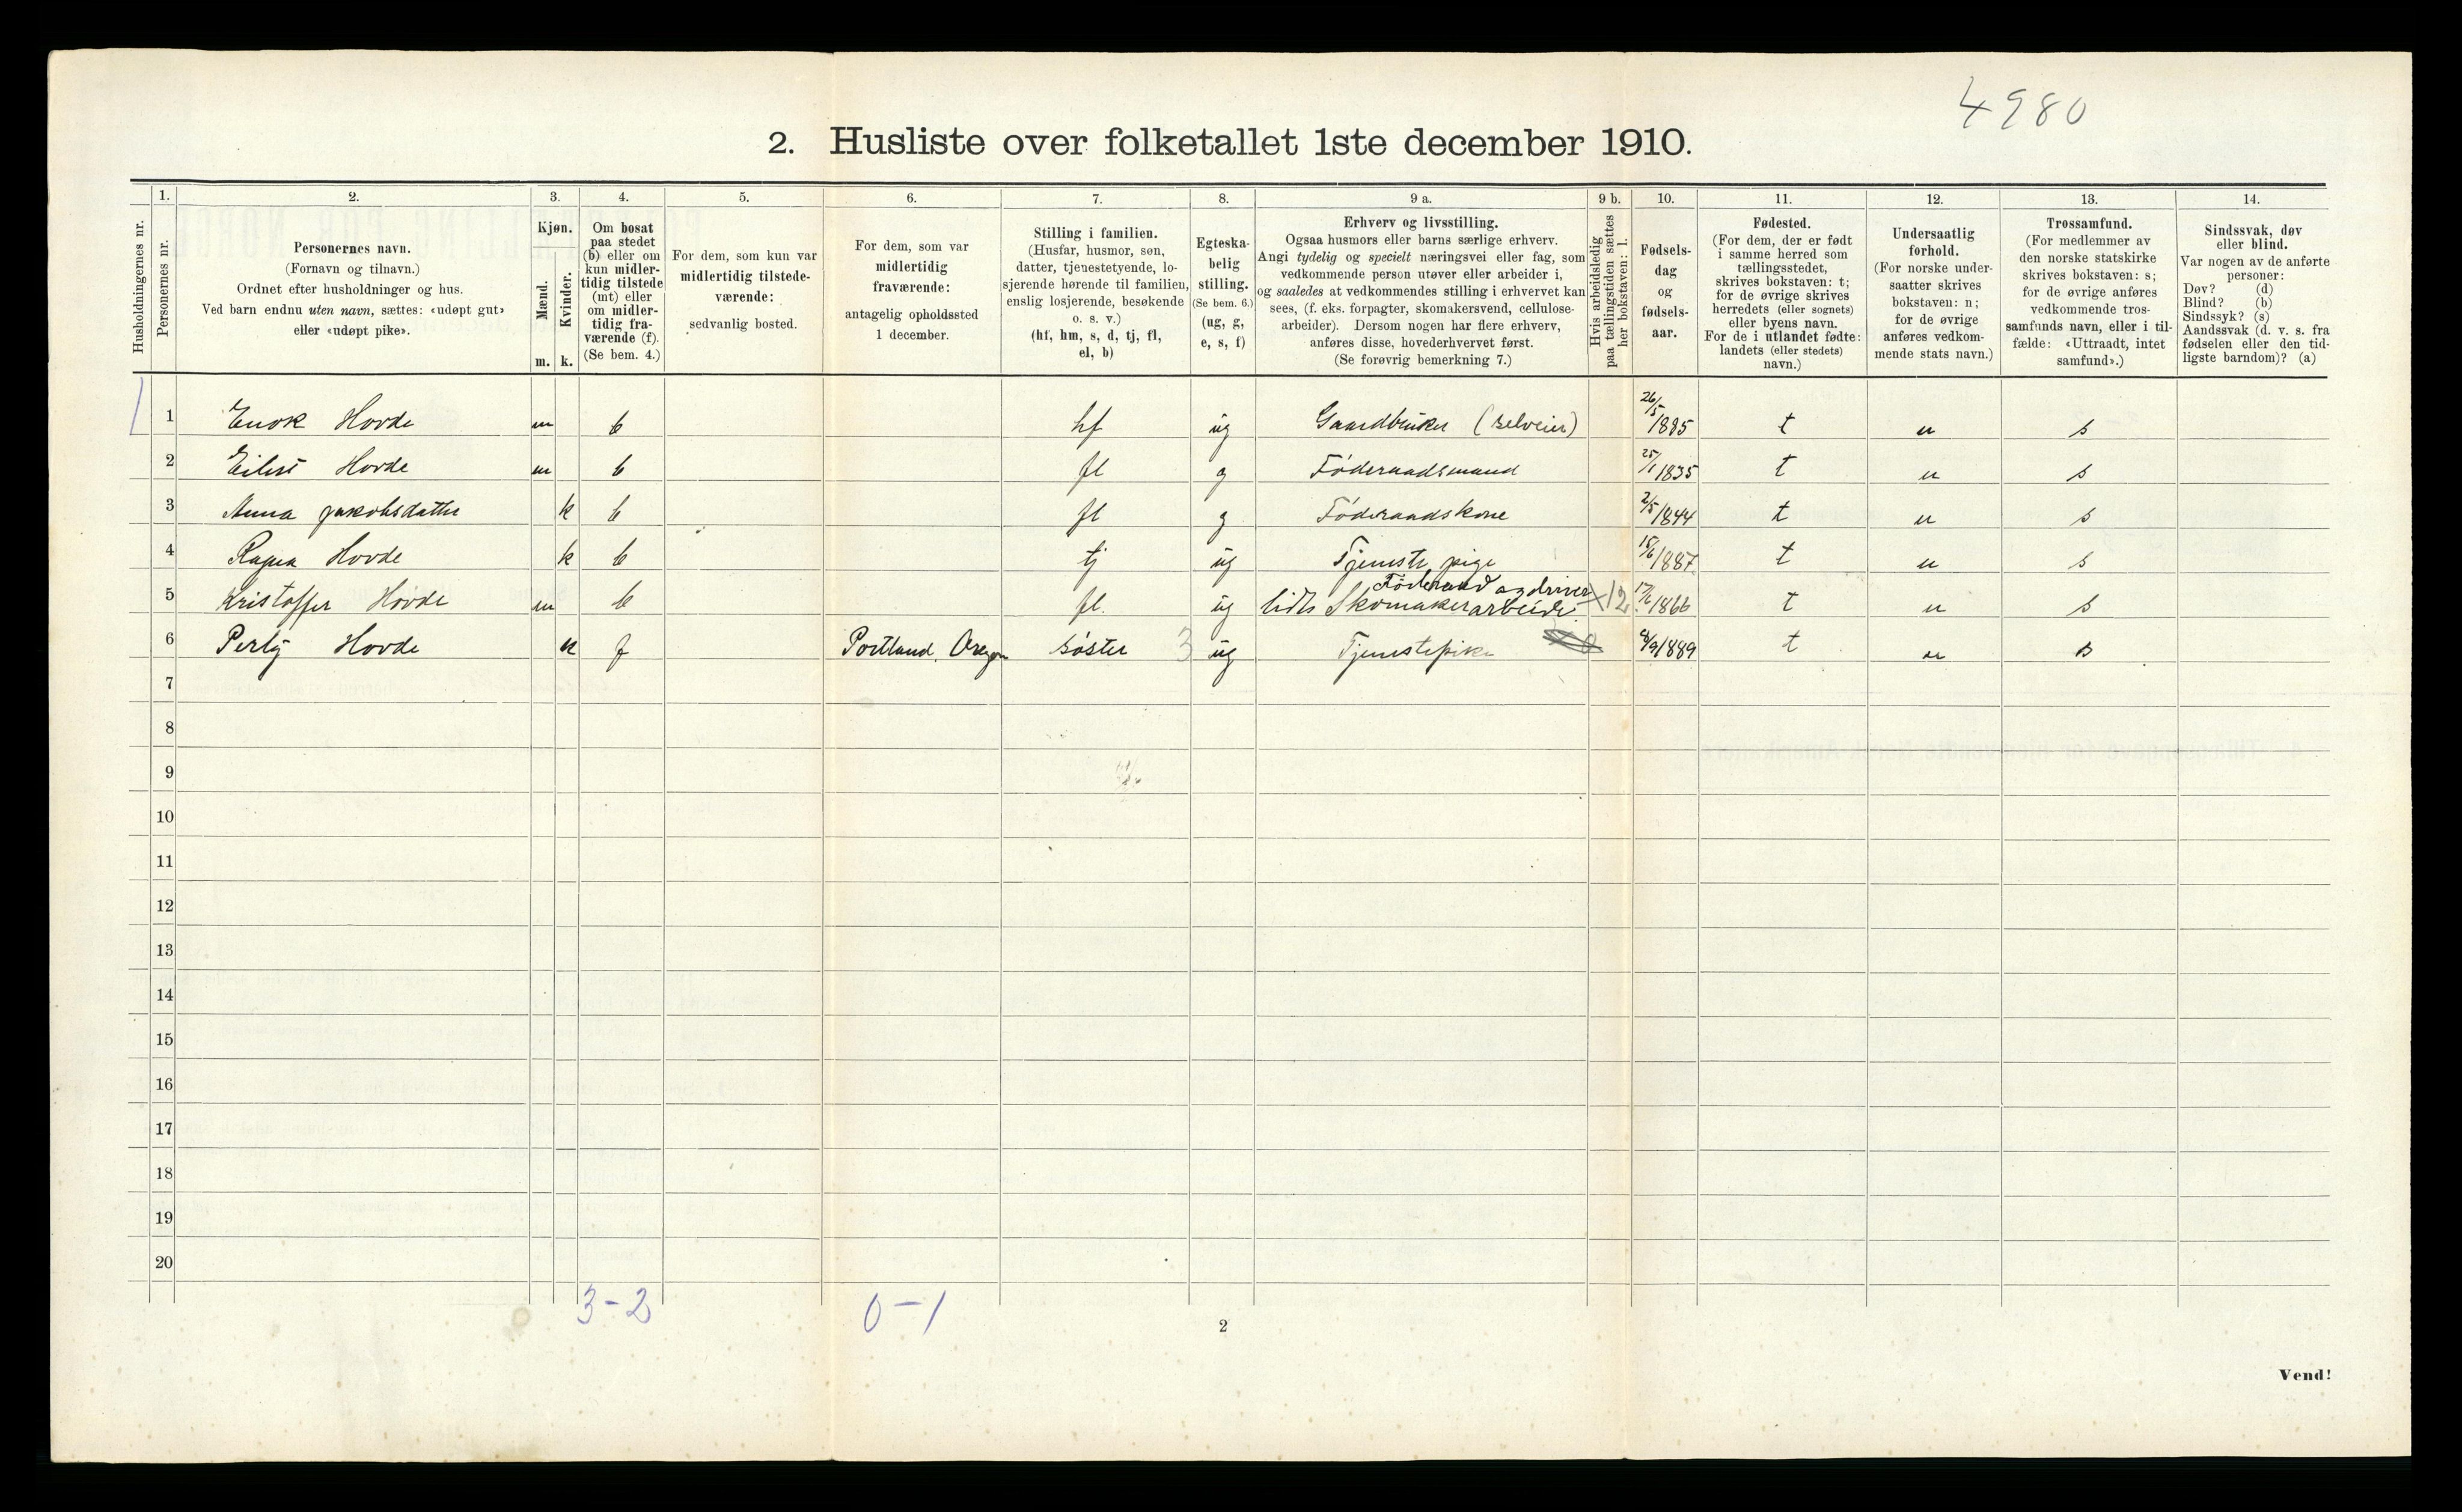 4980
2. Husliste over folketallet 1ste december 1910.
Husholdningernes nr.
1.
Personernes nr.
2.
Personernes navn.
(Fornavn og tilnavn.)
Ordnet efter husholdninger og hus.
Ved barn endnu uten navn, sættes: «udøpt gut»
eller «udøpt pike».
3.
Kjøn.
Mænd.
Kvinder.
m. k.
4.
Om bosat
paa stedet
(b) eller om
kun midler-
tidig tilstede
(mt) eller
om midler-
tidig fra-
værende (f).
(Se bem. 4.)
5.
For dem, som kun var
midlertidig tilstede-
værende:
sedvanlig bosted.
6.
For dem, som var
midlertidig
fraværende:
antagelig opholdssted
1 december.
7.
Stilling i familien.
(Husfar, husmor, søn,
datter, tjenestetyende, lo-
sjerende hørende til familien,
enslig losjerende, besøkende
o. s. v.)
(hf, hm, s, d, tj, fl,
el, b)
8.
Egteska-
belig
stilling.
(Se bem. 6.)
(ug, g,
e, s, f)
9 a.
Erhverv og livsstilling.
Ogsaa husmors eller barns særlige erhverv.
Angi tydelig og specielt næringsvei eller fag, som
vedkommende person utøver eller arbeider i,
og saaledes at vedkommendes stilling i erhvervet kan
sees, (f. eks. forpagter, skomakersvend, cellulose-
arbeider). Dersom nogen har flere erhverv,
anføres disse, hovederhvervet først.
(Se forøvrig bemerkning 7.)
9 b.
Hvis arbeidsledig
paa tællingstiden sættes
her bokstaven: l.
10.
Fødsels-
dag
og
fødsels-
aar.
11.
Fødested.
(For dem, der er født
i samme herred som
tællingsstedet,
skrives bokstaven: t;
for de øvrige skrives
herredets (eller sognets)
eller byens navn.
For de i utlandet fødte:
landets (eller stedets)
navn.)
12.
Undersaatlig
forhold.
(For norske under-
saatter skrives
bokstaven: n;
for de øvrige
anføres vedkom-
mende stats navn.)
13.
Trossamfund.
(For medlemmer av
den norske statskirke
skrives bokstaven: s;
for de øvrige anføres
vedkommende tros-
samfunds navn, eller i til-
fælde: «Uttraadt, intet
samfund».)
14.
Sindssvak, døv
eller blind.
Var nogen av de anførte
personer:
Døv? (d)
Blind? (b)
Sindssyk? (s)
Aandssvak (d. v. s. fra
fødselen eller den tid-
ligste barndom)? (a)
1 1 Enok Hovde m b hf ug Gaardbruker (selveier) 26/5 1885 t n s
2 Eilert Hovde m b fl g Føderaadsmand 25/1 1835 t n s
3 Anna Jakobsdatter k b fl g Føderaadskone 2/5 1844 t n s
4 Ragna Hovde k b tj ug Tjenestepige 15/6 1887 t n s
5 Kristoffer Hovde m b fl. ug Føderaad og driver
lidt Skomakerarbeide. ×12 17/6 1866 t n s
6 Hovde k f Portland, Oregon søster 3 ug Tjenestepike 8/9 1889 t n s
7
8
9
10
11
12
13
14
15
16
17
18
19
20
3-2
0-1
2
Vend!